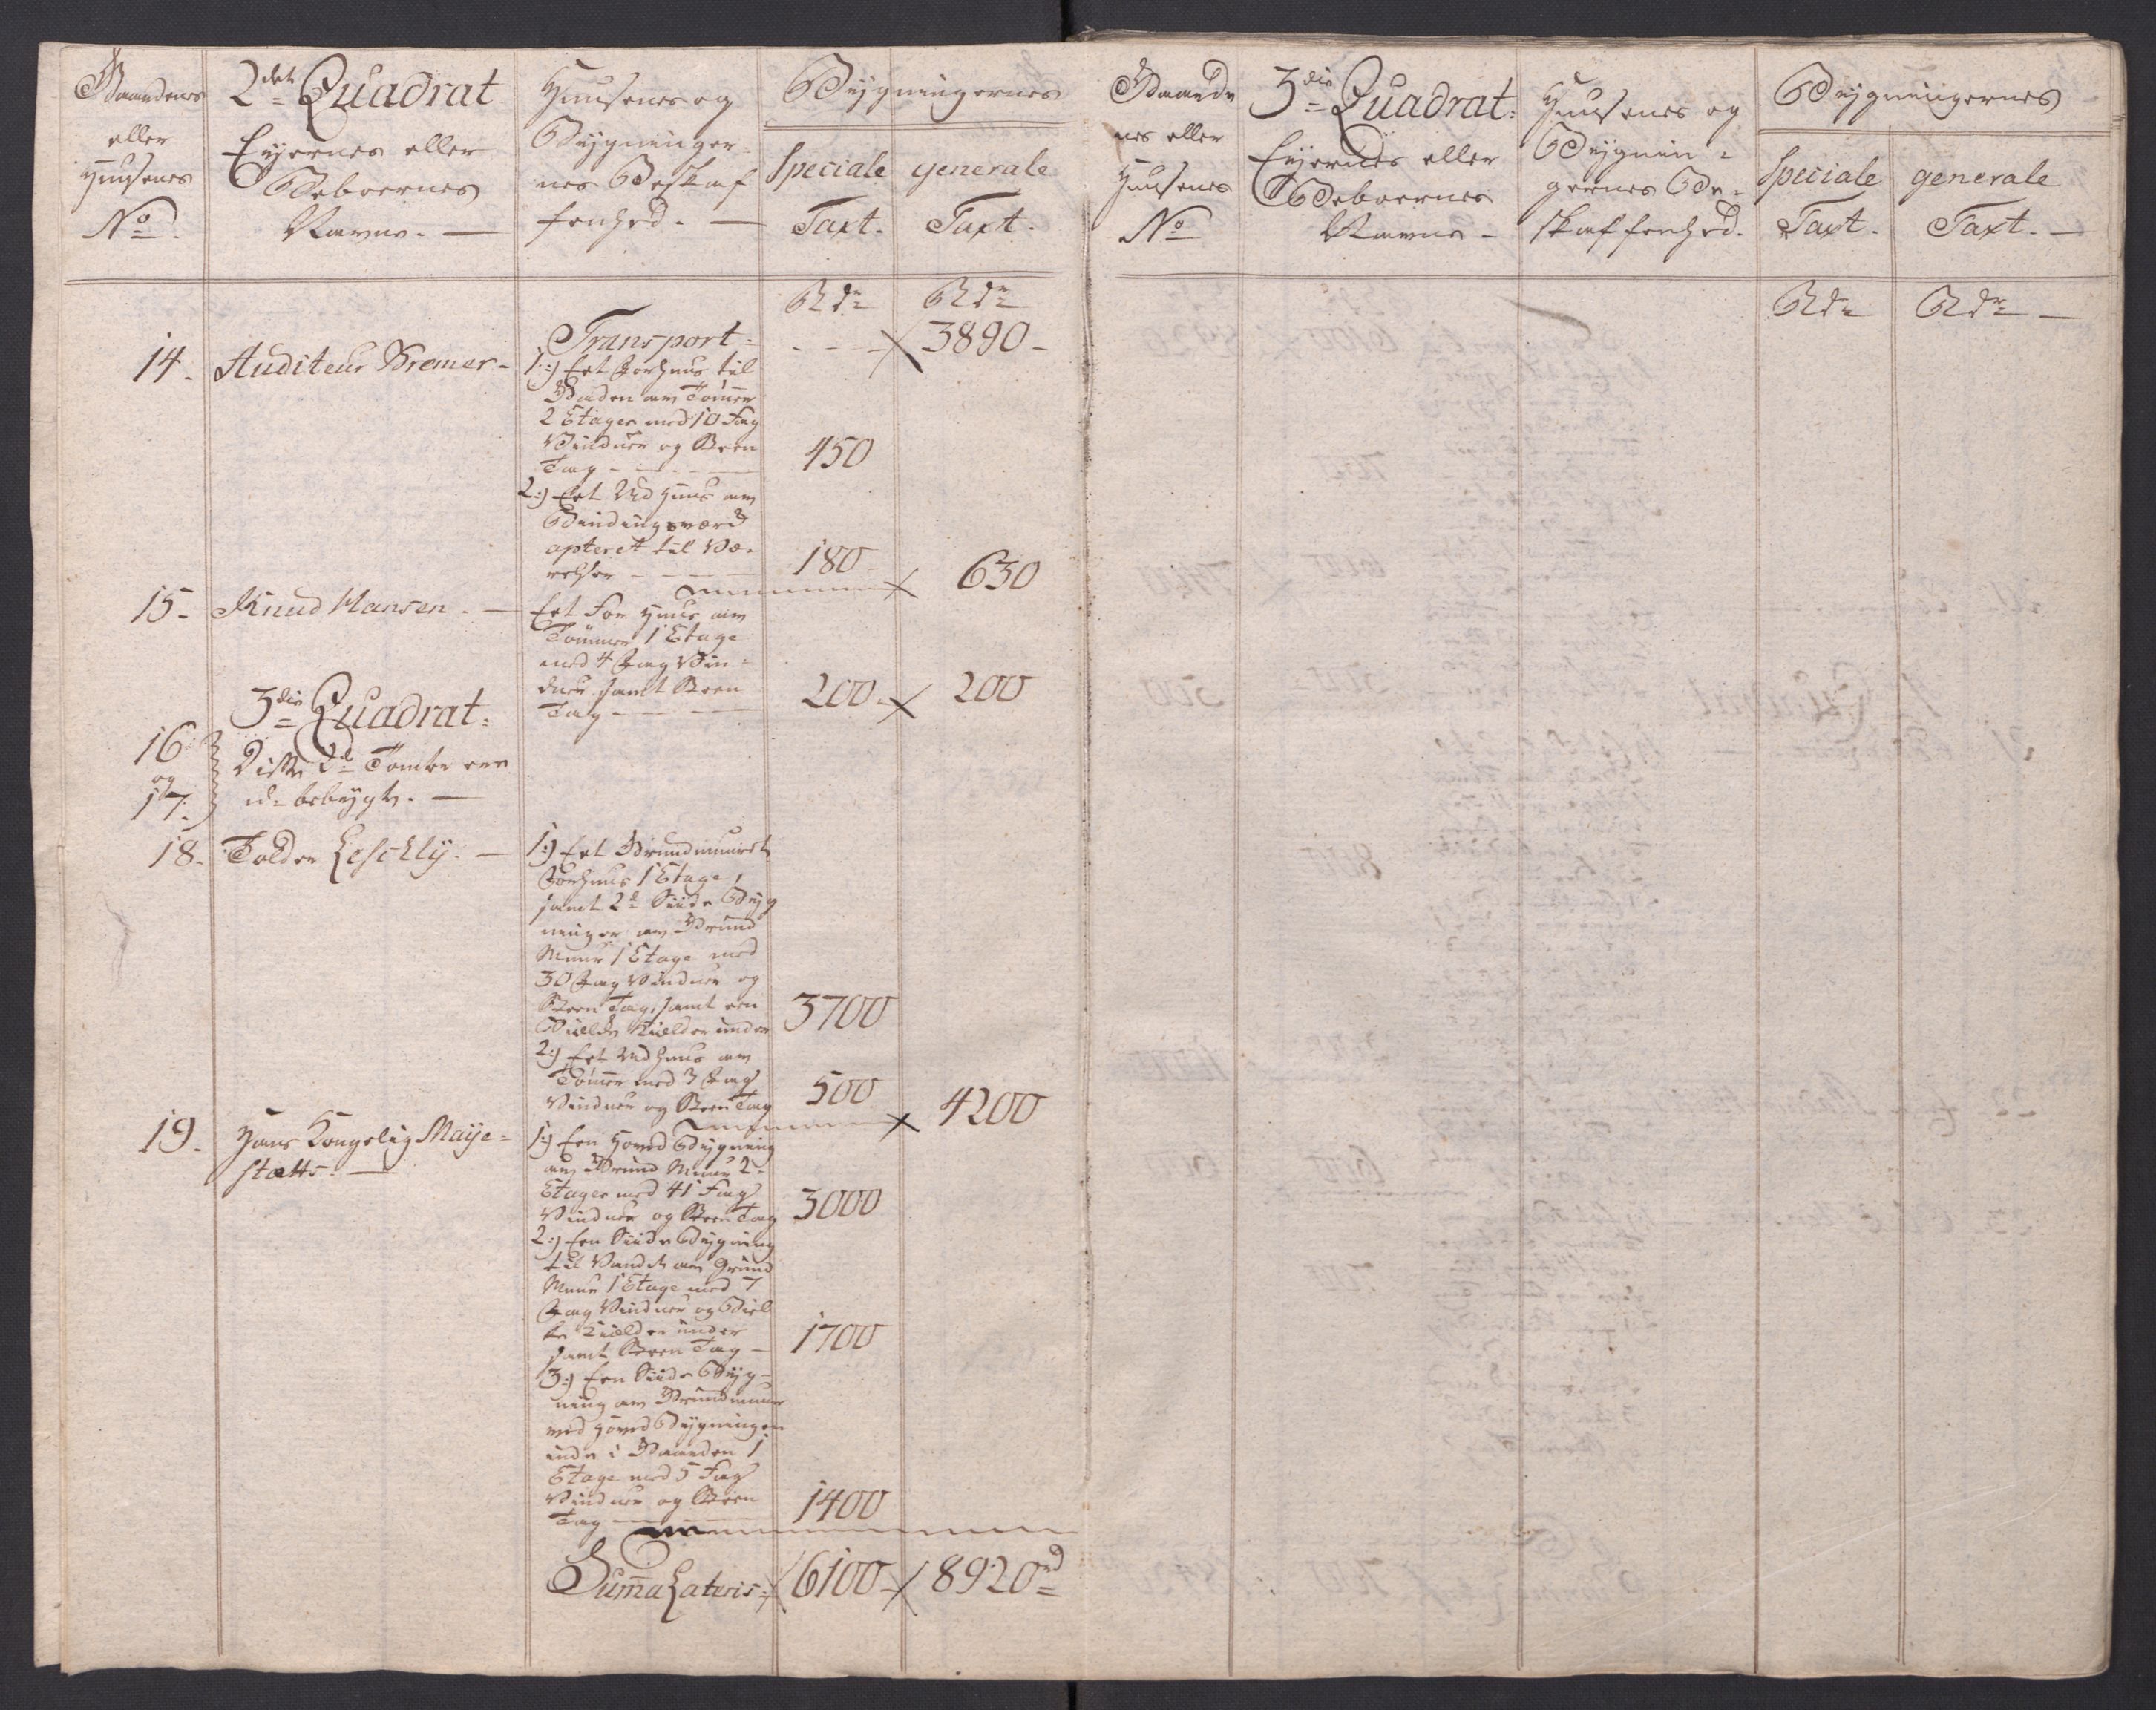 Gaardenes
eller
Huusenes
No
2det Quadrat
Eyernes eller
Beboernes
Navne. —
Huusenes og
Bygninger-
nes Beskaf
fenhed. —
Bygningernes
Speciale
Taxt.
generale
Taxt.
Rdr
Rdr
Transport =
3890 -
14.
Auditeur Bremer -
1:) Eet Forhuus til
Gaden am Tømer
2 Etager med 10 Fag
Vinduer og Steen
Tag - - - -
450
2:) Eet Ud Huus am
Bindingsværk
apteret til Væ-
relser - - -
180
630
15.
Knud Hansen. —
Eet For Huus am
Tømmer 1 Etage
med 4 Fag Vin-
duer samt Steen
Tag - - -
200
200
3die Quadrat =
16
og
17.
Disse 2de Tomter ere
u-bebygte. —
18.
Tolder Leschly. —
1:) Eet Grundmuuret
Forhuus 1 Etage,
samt 2de Siide Byg
ninger am Grund
Muur 1 Etage med
30 Fag Vinduer og
Steen Tag, samt een
Kielder under
3700
2:) Eet Udhuus am
Tømer med 3 Fag
Vinduer og Steen Tag
500
4200
19.
Hans Kongelig Maye=
stætts. —
1:) Een Hoved Bygning
am Grund Muur 2-
Etager med 41 Fag
Vinduer og Steen Tag
3000
2:) Een Siide Bygning
til Vandet am Grund
Muur 1 Etage med 7
Fag Vinduer og
Kielder under
samt Steen Tag —
1700
3:) Een Siide Byg-
ning am Grundmuur
ved Hoved Bygningen
inde i Gaarden 1
Etage med 5 Fag
Vinduer og Steen
Tag
1400
Suma Lateris =
6100
8920rd
Gaarde
nes eller
Huusenes
No
3die Quadrat =
Eyernes eller
Beboernes
Navne -
Huusenes og
Bygnin =
gernes Be-
skaffenhed.
Bygningernes
Speciale
Taxt.
generale
Taxt. —
Rdr
Rdr —